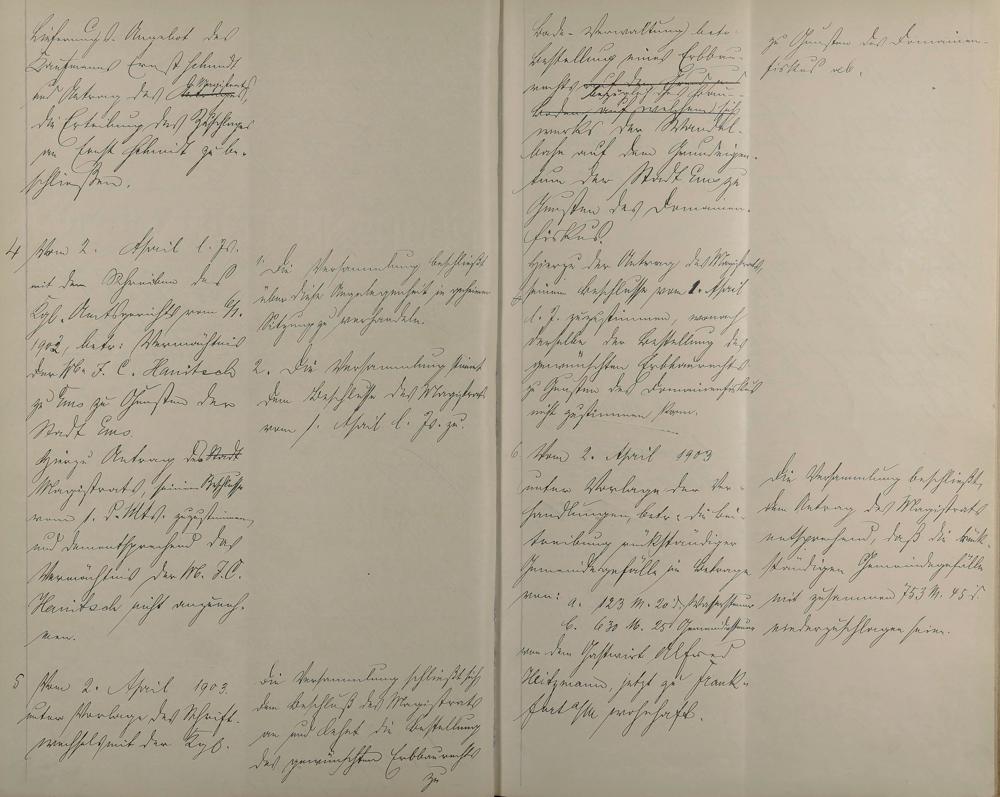 Lieferungs-Angebot des
Kaufmanns Ernst Schmidt
und Antrag des Magistrats,
die Erteilung des Zuschlages
an Ernst Schmidt zu be-
schließen.
4 Vom 2. April l. Js.
mit dem Schreiben des
Kgl. Amtsgerichts vom
1902, betr: Vermächtnis
der M. J. C. Hanitsch
zu Ems zu Gunsten der
Stadt Ems.
Hierzu Antrag des Stadt
Magistrats, seinem Beschlusse
vom 1. d. Mts. zuzustimmen,
und dementsprechend das
Vermächtnis der M. J. C.
Hanitsch nicht anzuneh-
men.
5 Vom 2. April 1903.
unter Vorlage des Schrift-
wechsels mit der Kgl.
1. Die Versammlung beschließt
über diese Angelegenheit in geheimer
Sitzung zu verhandeln.
2. Die Versammlung stimmt
dem Beschlusse des Magistrats
vom 1. April l. Js. zu.
Die Versammlung schließt sich
dem Beschluß des Magistrats
an und lehnt die Bestellung
des gewünschten Erbbaurechts
zu
Bade-Verwaltung betr.
Bestellung eines Erbbau-
rechts auf dem Grund und
bezüglich des
Boden, auf welchem sich
werks der Wandel-
bahn auf dem Grundeigen-
tum der Stadt Ems zu
Gunsten des Domainen-
fiskus.
Hierzu der Antrag des Magistrats,
seinem Beschlusse vom 1. April
l. J. zuzustimmen, wonach
derselbe der Bestellung des
gewünschten Erbbaurechts
zu Gunsten des Domainenfiskus
nicht zustimmen kann.
6 Vom 2. April 1903
unter Vorlage der Ver-
handlungen, betr: die Bei-
treibung rückständiger
Gemeindegefälle im Betrage
von: a. 123 M. 20 d. Wassersteuer
b. 630 M. 25 d Gemeindesteuer
von dem Gastwirt Alfred
Heitzmann, jetzt zu Frank-
furt a/M wohnhaft.
zu Gunsten des Domainen-
fiskus ab.
Die Versammlung beschließt,
dem Antrag des Magistrats
entsprechend, daß die rück-
ständigen Gemeindegefälle
mit zusammen 753 M. 45 d.
niedergeschlagen seien.